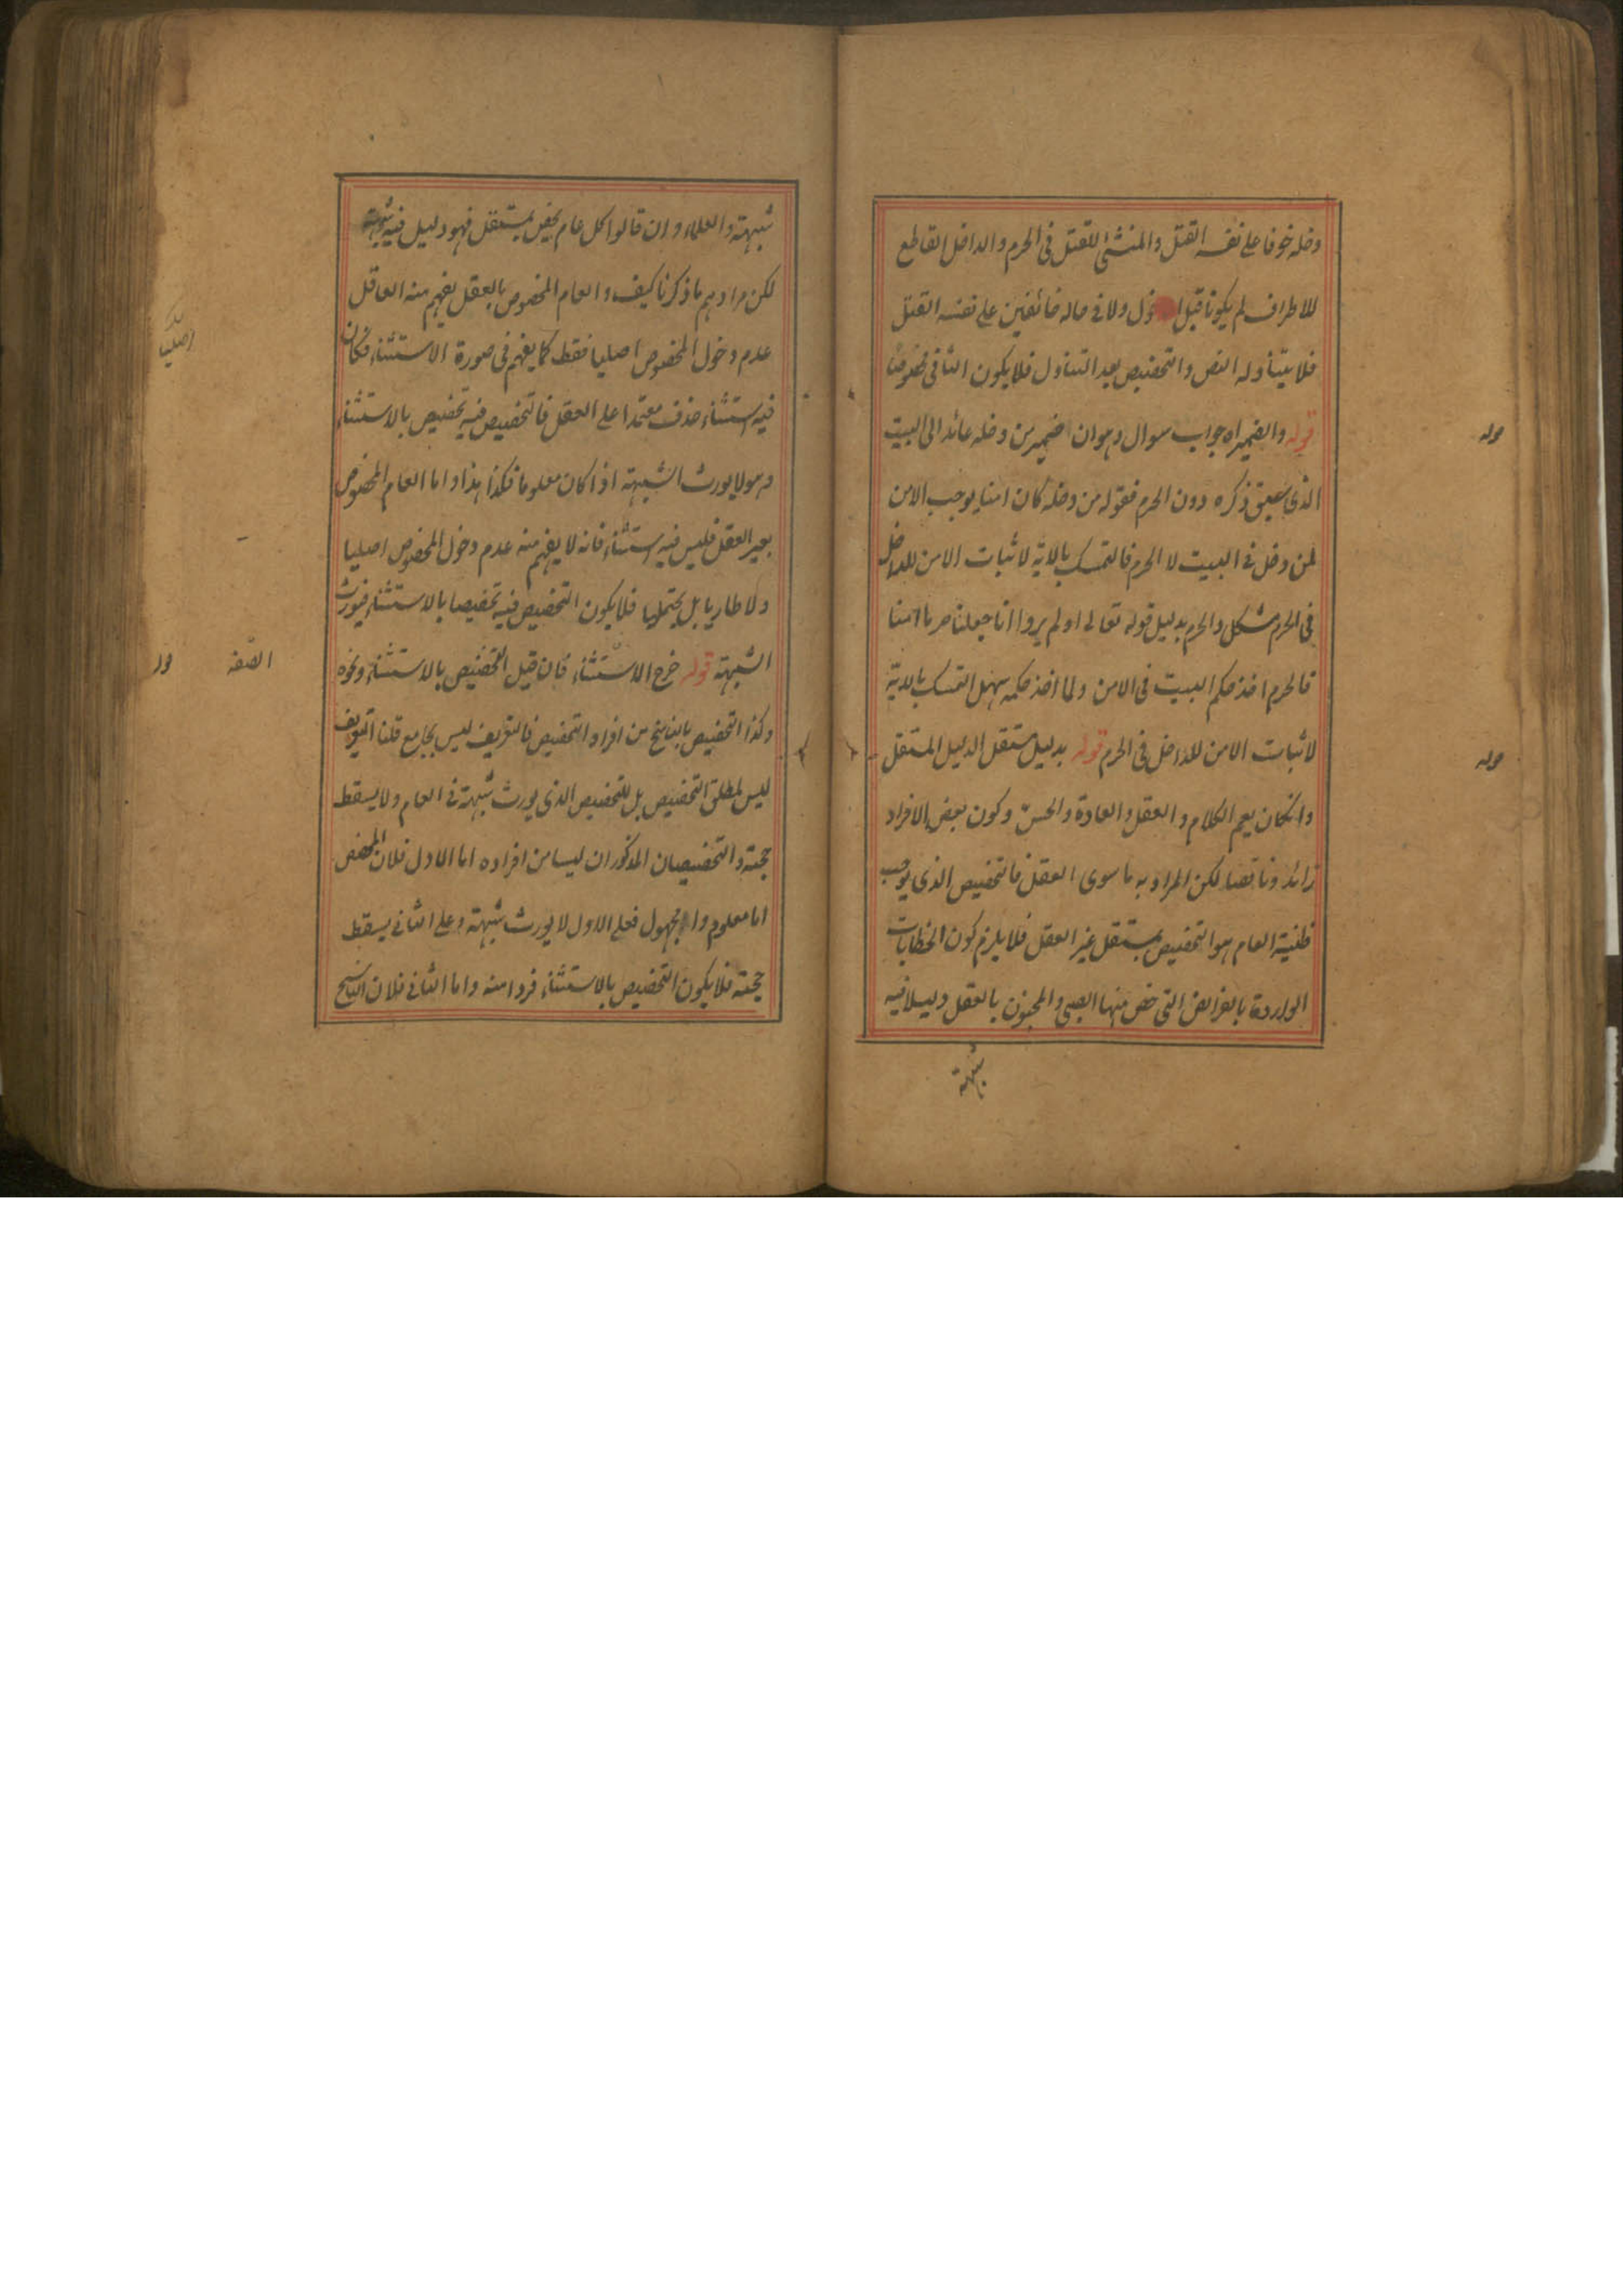 دخله خوفا على نفسه القتل والمنشئ للقتل فى الحرم والداخل القاطع
للاطراف لم يكونا قبل ول ولا فى حاله خائفين على نفسه القتل
فلا يتناوله النص والتخصيص بعد التناول فلا يكون الثانى مخصوصا
قوله والضمير اه جواب سوال وهو ان ضمير من دخله عائد الى البيت
الذى سبق ذكره دون الحرم فقوله من دخله كان امنا يوجب الامن
لمن دخل فى البيت لا الحرم فالتمسك بالاية لاثبات الامن للداخل
فى الحرم مشكل والحرم بدليل قوله تعالى اولم يروا انا جعلنا حرما امنا
فالحرم اخذ حكم البيت فى الامن ولما اخذ حكمه سهل التمسك بالاية
لاثبات الامن للداخل فى الحرم قوله بدليل مستقل الدليل المستقل
وانكان يعم الكلام والعقل والعادة والحس وكون بعض الافراد
زائدا وناقصا لكن المراد به ما سوى العقل فالتخصيص الذى يوجب
ظنية العام هو التخصيص بمستقل غير العقل فلا يلزم كون الخطابات
الواردة بالفرائض التى خص منها الصبى والمجنون بالعقل دليلا فيه
شبهة
قوله
قوله
شبهة والعلماء وان قالوا كل عام يخص بمستقل فهو دليل فيه شبهة
لكن مرادهم ما ذكرنا كيف والعام المخصوص بالعقل يفهم منه العاقل
عدم دخول المخصوص اصليا فقط كما يفهم فى صورة الاستثناء فكان
فيه استثناء حذف معتمدا على العقل فالتخصيص فيه تخصيص بالاستثناء
وهو لا يورث الشبهة اذا كان معلوما فكذا هذا واما العام المخصوص
بغير العقل فليس فيه استثناء فانه لا يفهم منه عدم دخول المخصوص اصليا
ولا طاريا بل يحتملهما فلا يكون التخصيص فيه تخصيصا بالاستثناء فيورث
الشبهة قوله خرج الاستثناء فان قيل التخصيص بالاستثناء ونحوه
وكذا التخصيص بالناسخ من افراد التخصيص فالتعريف ليس بجامع قلنا التعريف
ليس لمطلق التخصيص بل للتخصيص الذى يورث شبهة فى العام ولا يسقط
حجيته والتخصيصان المذكوران ليسا من افراده اما الاول فلان المخصص
اما معلوم واما مجهول فعلى الاول لا يورث شبهة وعلى الثانى يسقط
حجيته فلا يكون التخصيص بالاستثناء فردا منه واما الثانى فلان الناسخ
اصليا
الصفة